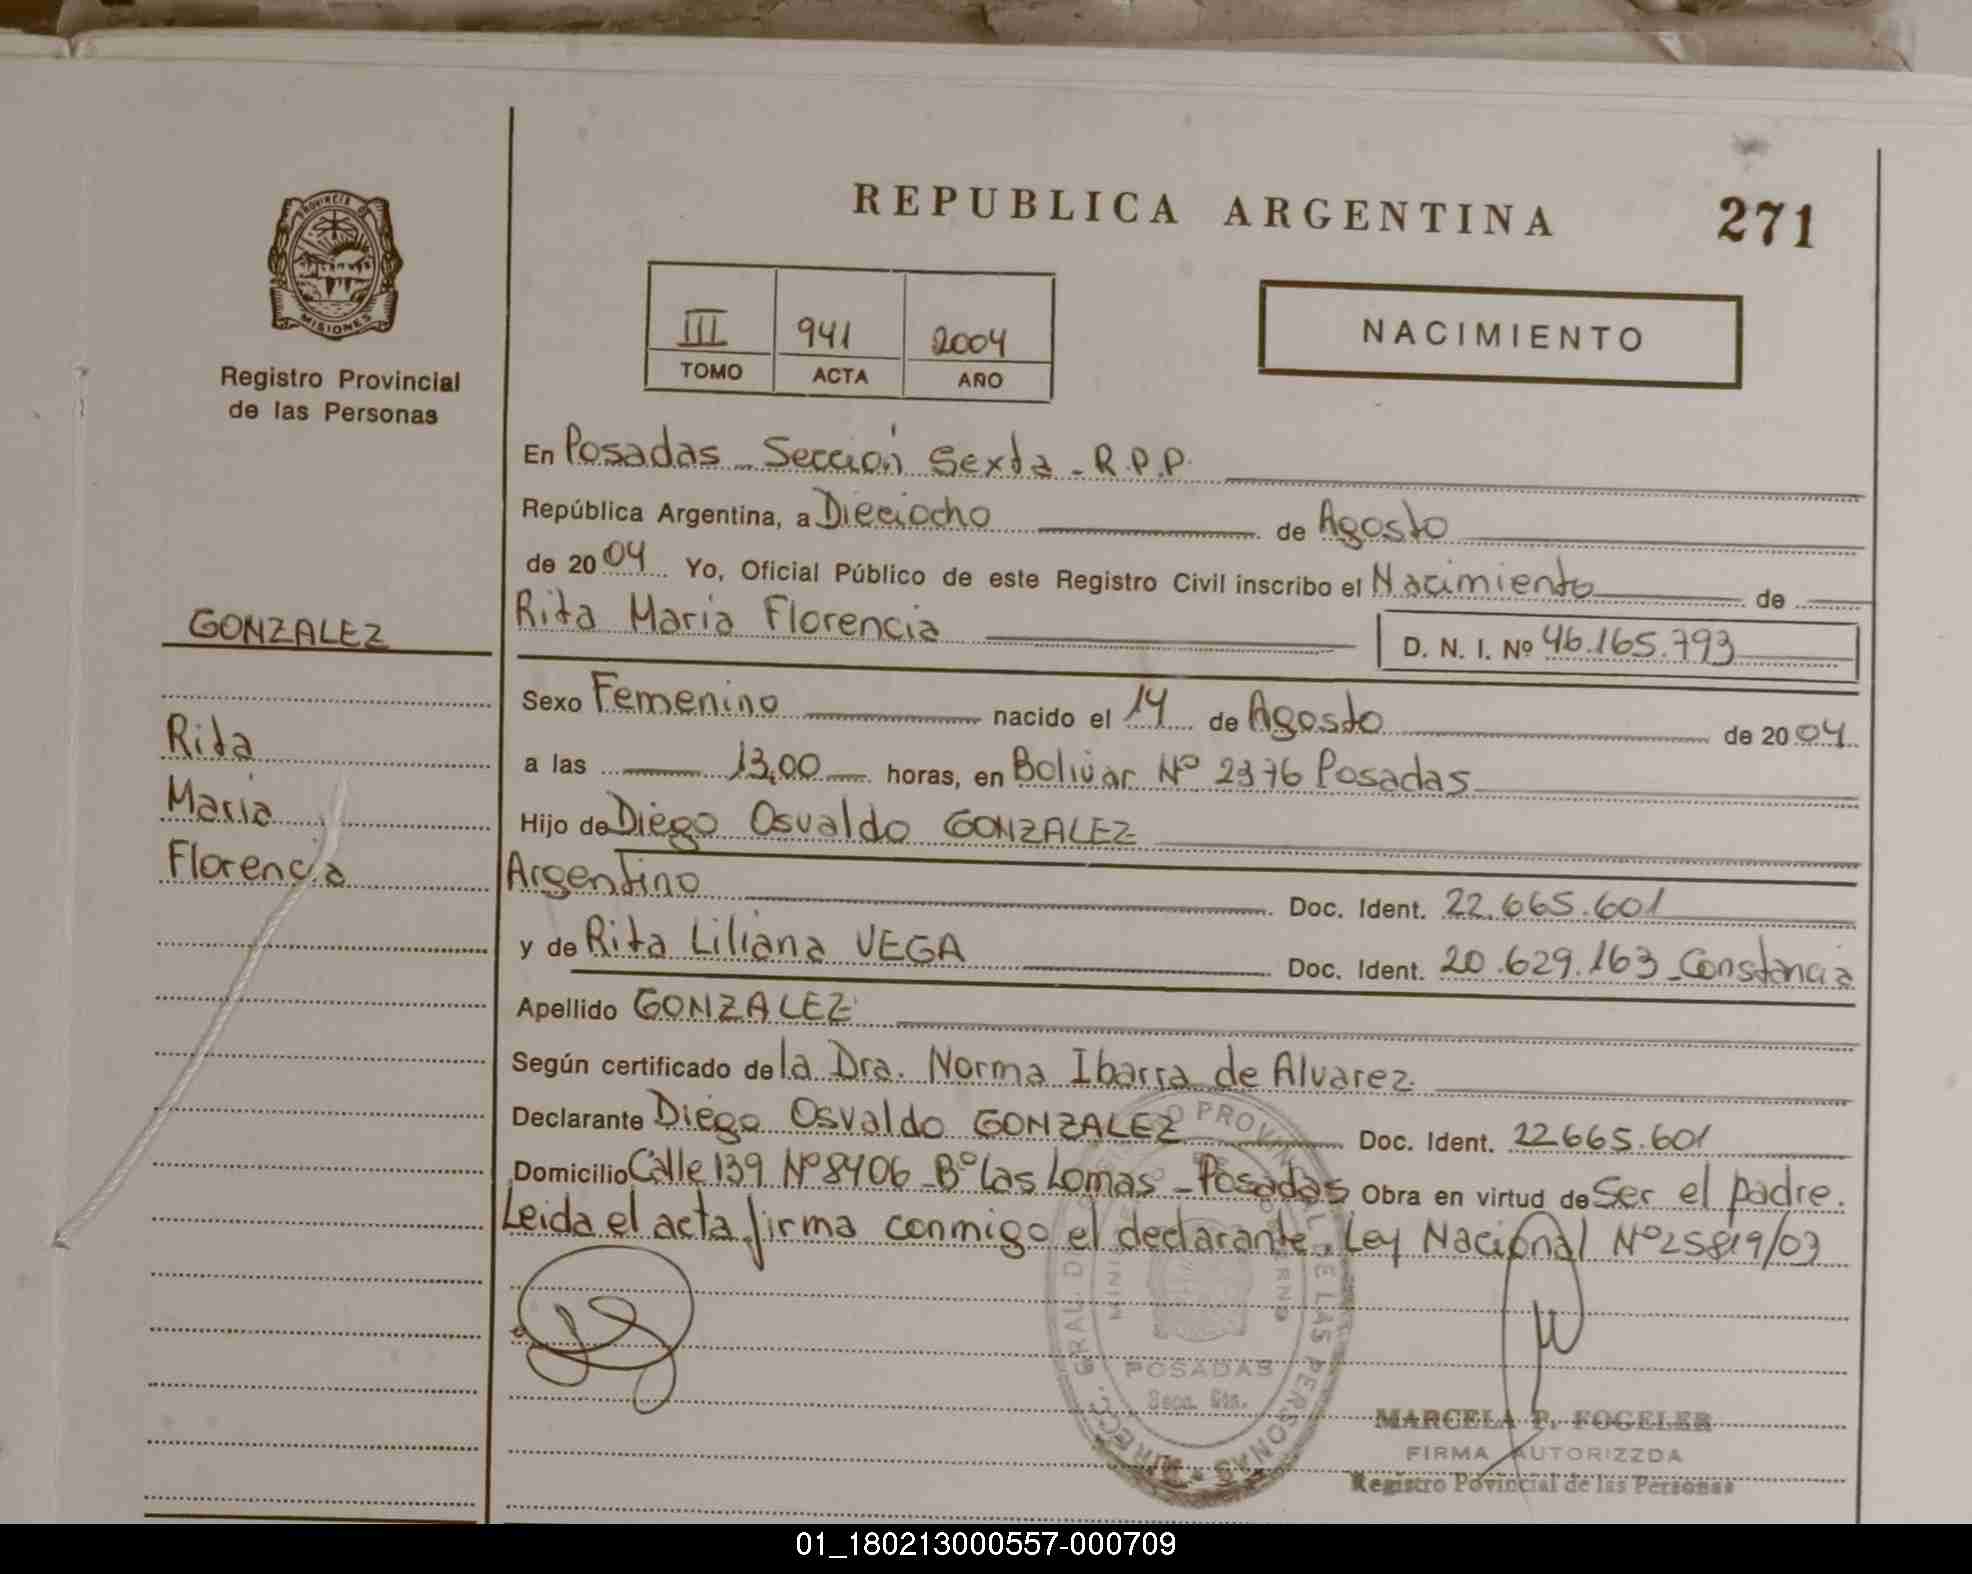 REPUBLICA ARGENTINA
271
PROVINCIA DE
MISIONES
Registro Provincial
de las Personas
III 941 2004
TOMO ACTA AÑO
NACIMIENTO
En Posadas - Sección Sexta - R.P.P.
República Argentina, a Dieciocho de Agosto
de 2004 Yo, Oficial Público de este Registro Civil inscribo el Nacimiento de
Rita María Florencia D. N. I. Nº 46.165.793
GONZALEZ
Rita
María
Florencia
Sexo Femenino nacido el 14 de Agosto de 2004
a las 13,00 horas, en Bolivar Nº 2376 Posadas
Hijo de Diego Osvaldo GONZALEZ
Argentino Doc. Ident. 22.665.601
y de Rita Liliana VEGA Doc. Ident. 20.629.163 - Constancia
Apellido GONZALEZ
Según certificado de la Dra. Norma Ibarra de Alvarez
Declarante Diego Osvaldo GONZALEZ Doc. Ident. 22665.601
Domicilio Calle 139 Nº 8406 - Bº Las Lomas - Posadas Obra en virtud de Ser el padre.
Leida el acta firma conmigo el declarante. Ley Nacional Nº 25819/03
POSADAS
Secc. 6ta.
MARCELA P. FOGELER
FIRMA AUTORIZZDA
Registro Povincial de las Personas
01_180213000557-000709